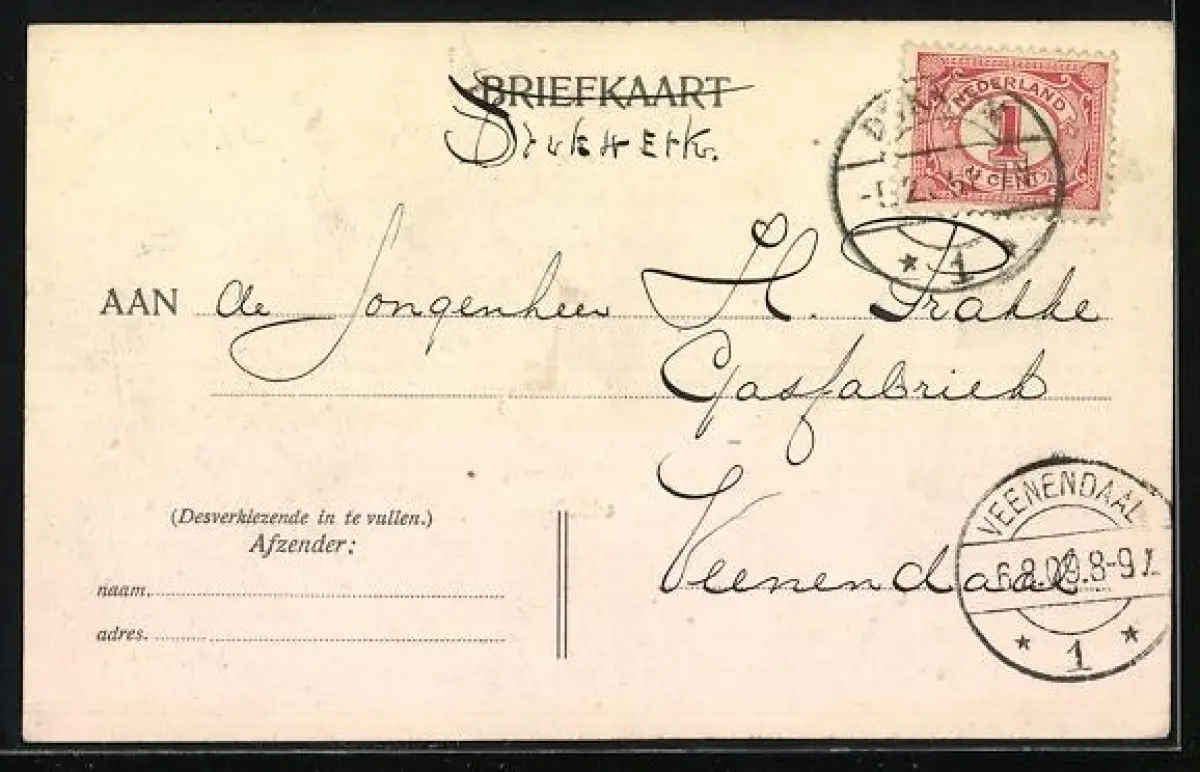 BRIEFKAART
Drukwerk.
NEDERLAND
1
CENT
1
AAN de Jongenheer H.
Gasfabriek
Veenendaal
VEENENDAAL
6.8.09.8-9V
1
(Desverkiezende in te vullen.)
Afzender:
naam.
adres.